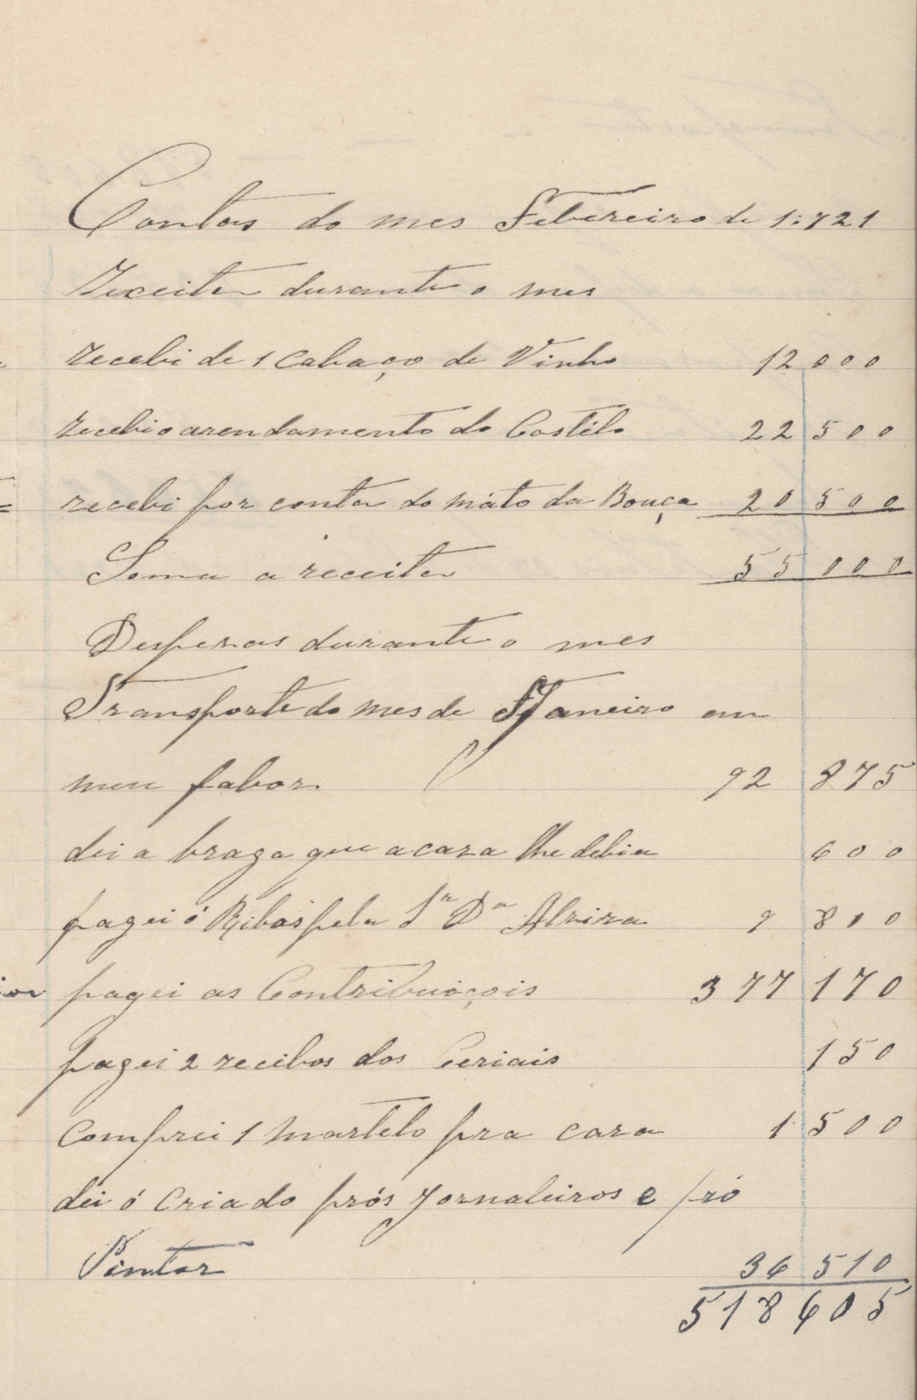 Contas do mes Febereiro de 1:921
Receita durante o mes
recebi de 1 Cabaço de Vinho 12 000
recebi o arendamento do Costélo 22 500
recebi por conta do máto da Bouça 20 500
Soma a receita 55 000
Despezas durante o mes
Transporte do mes de Janeiro em
meu fabor. 92 875
dei a braga que a caza lhe debia 600
pagei ó Ribas pela Sra Da Alzira 9 800
pagei as Contribuiçois 377 170
pagei 2 recibos dos Ceriais 150
comprei 1 martelo pra caza 1 500
dei ó Criado prós Jornaleiros e pró
Pintor 36 510
518 605